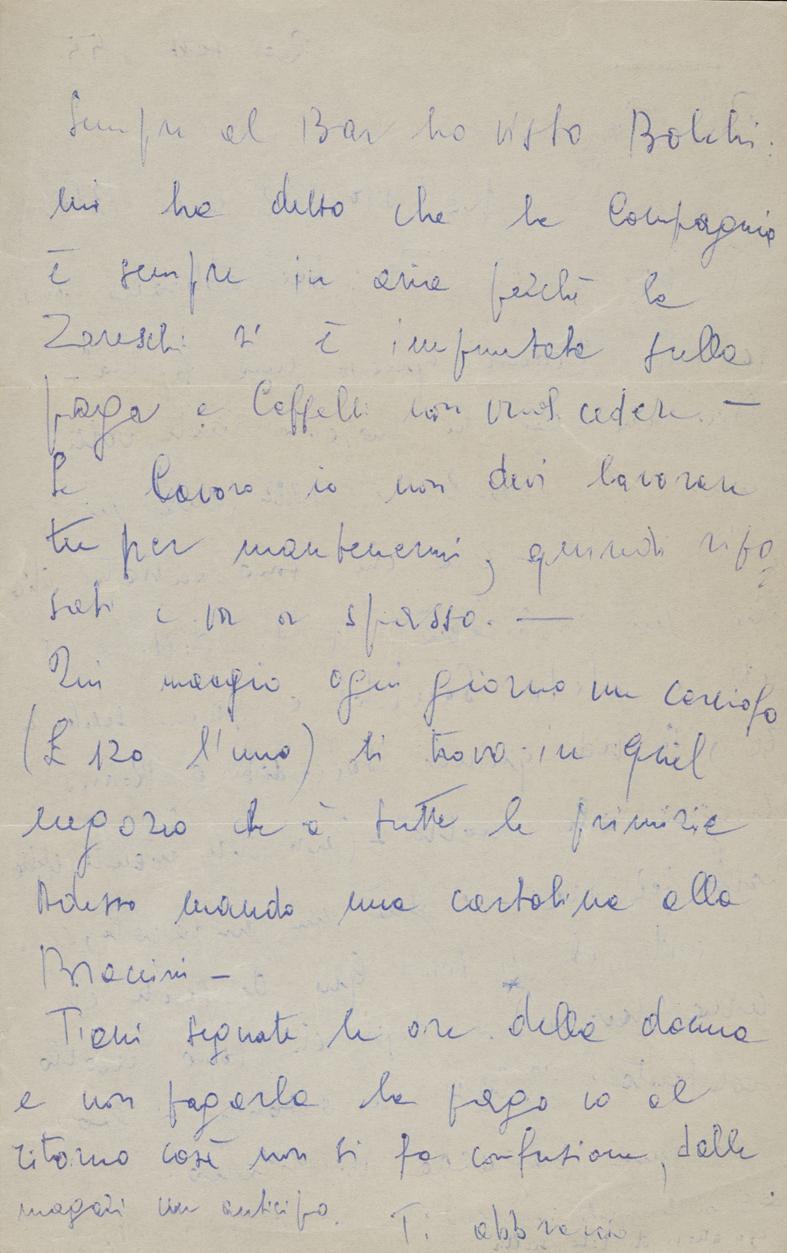 Sempre al Bar ho visto Bolchi:
mi ha detto che la Compagnia
è sempre in aria perché la
Zareschi si è impuntata sulla
paga e Caffelli non vuol cedere. —
Se lavoro io non devi lavorare
tu per mantenermi, quindi ripo
sati e va a spasso. —
Qui mangio ogni giorno un carciofo
(£ 120 l'uno) li trovo in quel
negozio che à tutte le primizie
Adesso mando una cartolina alla
Braccini —
Tieni segnate le ore della donna
e non pagarla la pago io al
ritorno così non si fa confusione, dalle
magari un anticipo. Ti abbraccio